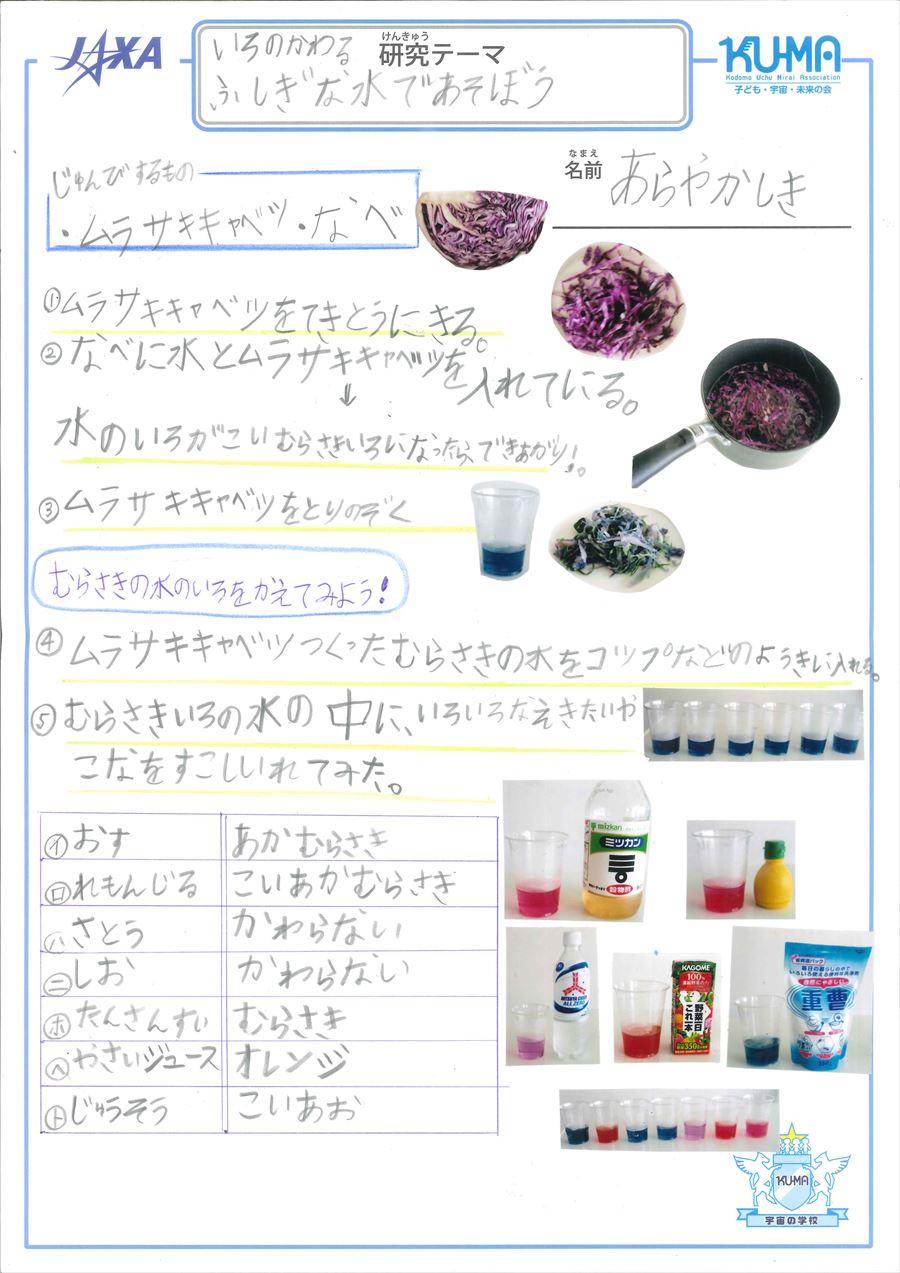 JAXA
いろのかわる
けんきゅう
研究テーマ
ふしぎな水であそぼう
KU-MA
Kodomo Uchu Mirai Association
子ども・宇宙・未来の会
じゅんびするもの
・ムラサキキャベツ・なべ
なまえ
名前 あらやかしき
①ムラサキキャベツをてきとうにきる。
②なべに水とムラサキキャベツを入れてにる。
↓
水のいろがこいむらさきいろになったらできあがり!。
③ムラサキキャベツをとりのぞく
むらさきの水のいろをかえてみよう!
④ムラサキキャベツつくったむらさきの水をコップなどのようきに入れる。
⑤むらさきいろの水の中に、いろいろなえきたいや
こなをすこしいれてみた。
㋑おす あかむらさき
㋺れもんじる こいあかむらさき
㋩さとう かわらない
㋥しお かわらない
㋭たんさんすい むらさき
㋬やさいジュース オレンジ
㋣じゅうそう こいあお
mizkan
ミツカン
穀物酢
MITSUYA CIDER
ALL ZERO
KAGOME
100%
野菜一日これ一本
野菜350g分使用
毎日の暮らしの中で
いろいろ使える便利な洗浄剤
自然にやさしい
重曹
KU-MA
宇宙の学校